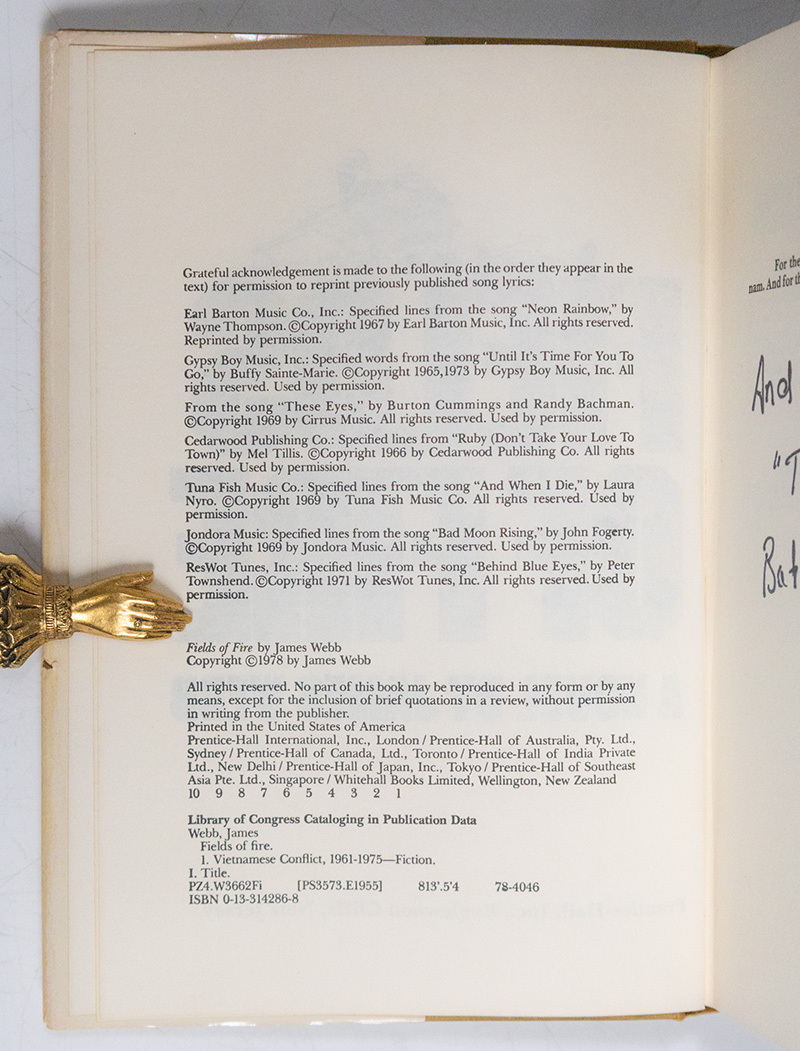 Grateful acknowledgement is made to the following (in the order they appear in the
text) for permission to reprint previously published song lyrics:
Earl Barton Music Co., Inc.: Specified lines from the song “Neon Rainbow,” by
Wayne Thompson. ©Copyright 1967 by Earl Barton Music, Inc. All rights reserved.
Reprinted by permission.
Gypsy Boy Music, Inc.: Specified words from the song “Until It’s Time For You To
Go,” by Buffy Sainte-Marie. ©Copyright 1965,1973 by Gypsy Boy Music, Inc. All
rights reserved. Used by permission.
From the song “These Eyes,” by Burton Cummings and Randy Bachman.
©Copyright 1969 by Cirrus Music. All rights reserved. Used by permission.
Cedarwood Publishing Co.: Specified lines from “Ruby (Don’t Take Your Love To
Town)” by Mel Tillis. ©Copyright 1966 by Cedarwood Publishing Co. All rights
reserved. Used by permission.
Tuna Fish Music Co.: Specified lines from the song “And When I Die,” by Laura
Nyro. ©Copyright 1969 by Tuna Fish Music Co. All rights reserved. Used by
permission.
Jondora Music: Specified lines from the song “Bad Moon Rising,” by John Fogerty.
©Copyright 1969 by Jondora Music. All rights reserved. Used by permission.
ResWot Tunes, Inc.: Specified lines from the song “Behind Blue Eyes,” by Peter
Townshend. ©Copyright 1971 by ResWot Tunes, Inc. All rights reserved. Used by
permission.
Fields of Fire by James Webb
Copyright ©1978 by James Webb
All rights reserved. No part of this book may be reproduced in any form or by any
means, except for the inclusion of brief quotations in a review, without permission
in writing from the publisher.
Printed in the United States of America
Prentice-Hall International, Inc., London / Prentice-Hall of Australia, Pty. Ltd.,
Sydney / Prentice-Hall of Canada, Ltd., Toronto / Prentice-Hall of India Private
Ltd., New Delhi / Prentice-Hall of Japan, Inc., Tokyo / Prentice-Hall of Southeast
Asia Pte. Ltd., Singapore / Whitehall Books Limited, Wellington, New Zealand
10 9 8 7 6 5 4 3 2 1
Library of Congress Cataloging in Publication Data
Webb, James
Fields of fire.
1. Vietnamese Conflict, 1961-1975—Fiction.
I. Title.
PZ4.W3662Fi [PS3573.E1955] 813’.5’4 78-4046
ISBN 0-13-314286-8
For the
nam. And for th
And
“T
Bat